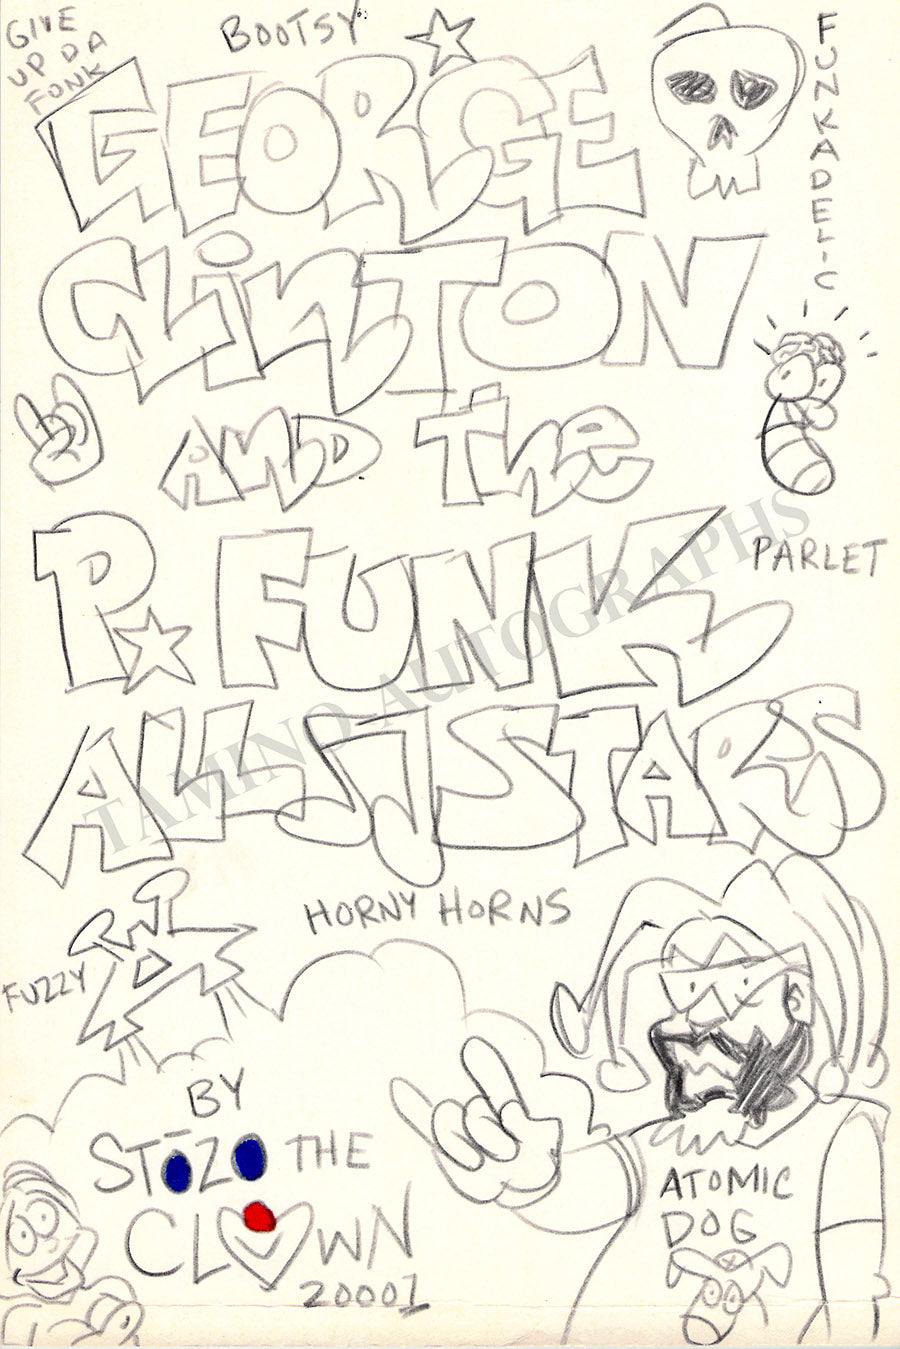 GIVE
UP DA
FONK
BOOTSY
FUNKADELIC
GEORGE
CLINTON
AND THE
P. FUNK
PARLET
ALL STARS
HORNY HORNS
FUZZY
BY
STOZO THE
CLOWN
20001
ATOMIC
DOG
TAMINO AUTOGRAPHS